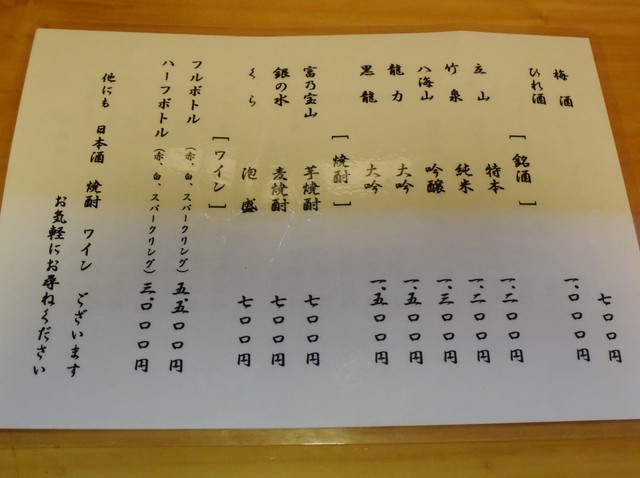 梅酒 七〇〇円
ひれ酒 一、〇〇〇円
[銘酒]
立山 特本 一、二〇〇円
竹泉 純米 一、二〇〇円
八海山 吟醸 一、三〇〇円
龍力 大吟 一、五〇〇円
黒龍 大吟 一、五〇〇円
[焼酎]
富乃宝山 芋焼酎 七〇〇円
銀の水 麦焼酎 七〇〇円
くら 泡盛 七〇〇円
[ワイン]
フルボトル (赤、白、スパークリング) 五、五〇〇円
ハーフボトル (赤、白、スパークリング) 三、〇〇〇円
他にも 日本酒 焼酎 ワイン ございます
お気軽にお尋ねください